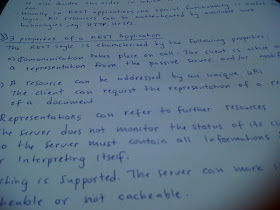 in REST applications no special functionality is
logic. All resources can be authenticated by
technologies e.g. HTTP, HTTPS.
properties of a REST Application
The REST style is characterised by the following properties:
Communication takes place on call. The client is active and
a representation from the passive server and/or
A resource can be addressed by an unique URI
The client can request the representation of a
of a document.
Representations can refer to further resources
The server does not monitor the status of its
so the server must contain all informations
for interpreting itself.
is supported. The server can mark
or not cacheable.